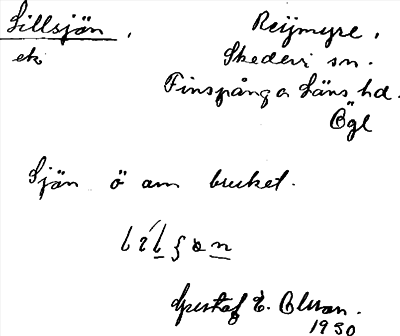 Lillsjön. Reijmyre.
ek Skedevi sn.
Finspånga Läns hd.
Ögl
Sjön ö om bruket.
Gustaf E. Olsson.
1930